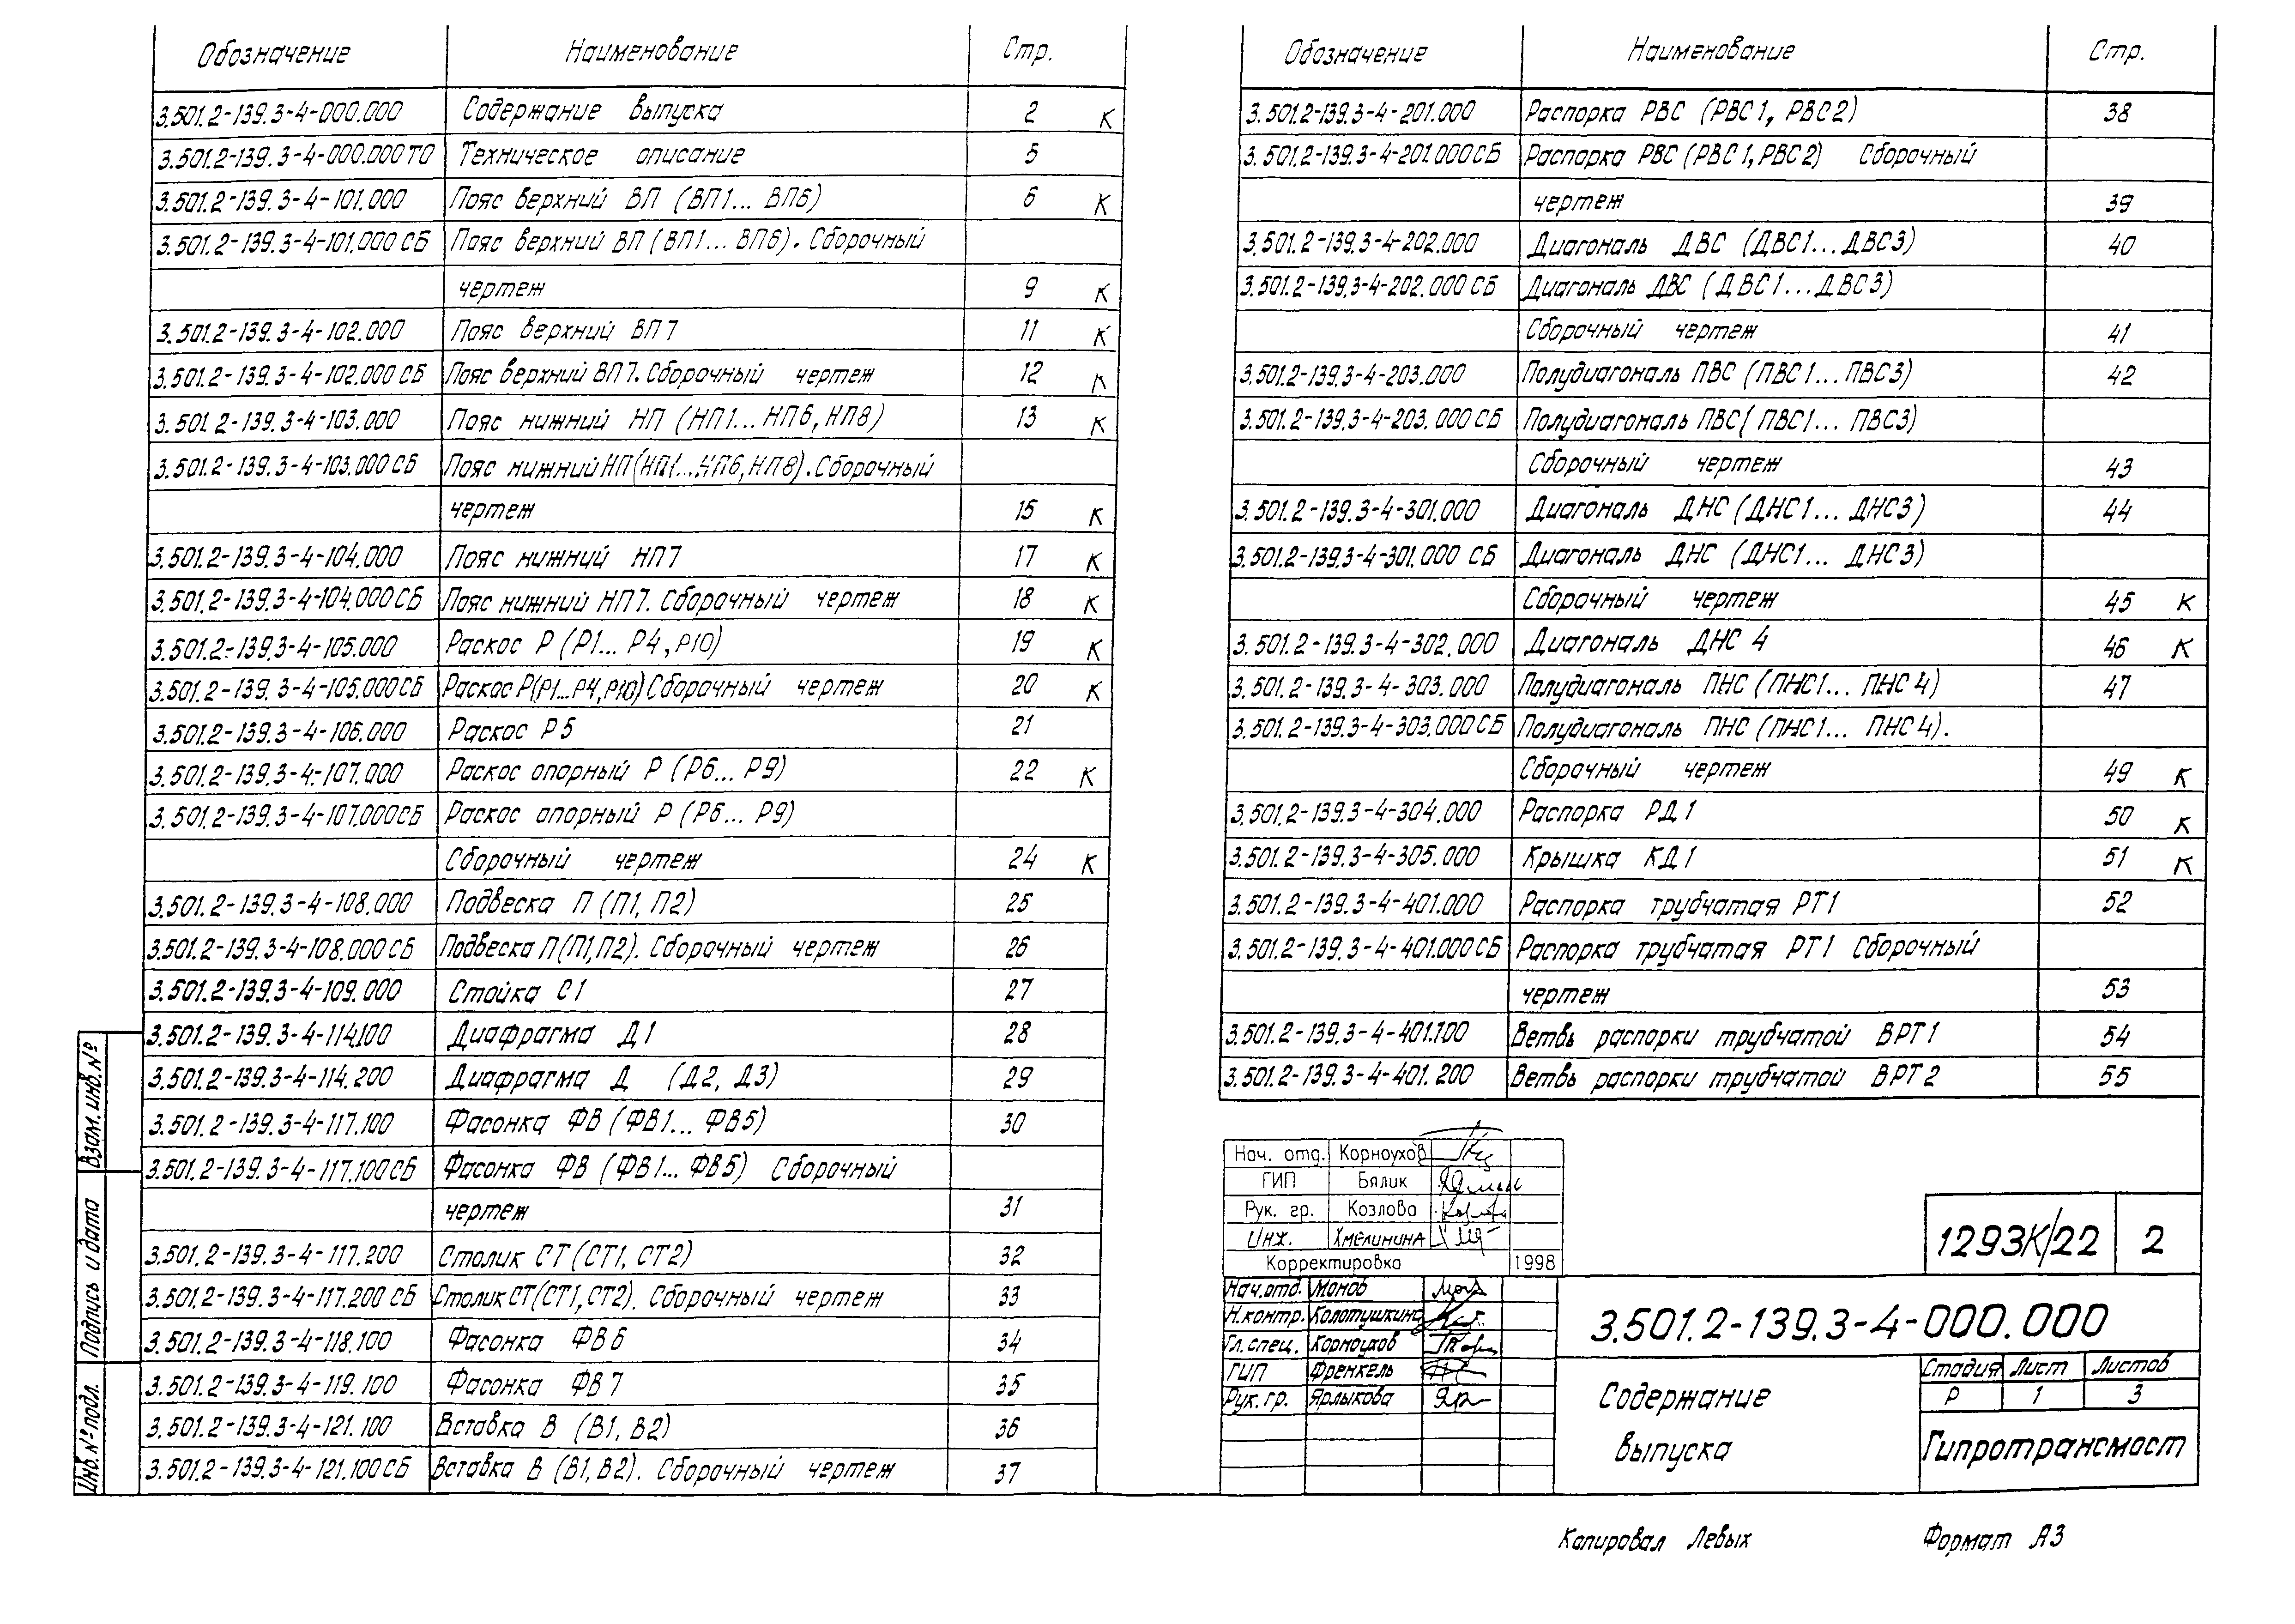 Обозначение Наименование Стр.
3.501.2-139.3-4-000.000 Содержание выпуска 2 К
3.501.2-139.3-4-000.000ТО Техническое описание 5
3.501.2-139.3-4-101.000 Пояс верхний ВП (ВП1... ВП6) 6 К
3.501.2-139.3-4-101.000 СБ Пояс верхний ВП (ВП1... ВП6). Сборочный
чертеж 9 К
3.501.2-139.3-4-102.000 Пояс верхний ВП7 11 К
3.501.2-139.3-4-102.000 СБ Пояс верхний ВП7. Сборочный чертеж 12 К
3.501.2-139.3-4-103.000 Пояс нижний НП (НП1... НП6, НП8) 13 К
3.501.2-139.3-4-103.000 СБ Пояс нижний НП (НП1... НП6, НП8). Сборочный
чертеж 15 К
3.501.2-139.3-4-104.000 Пояс нижний НП7 17 К
3.501.2-139.3-4-104.000 СБ Пояс нижний НП7. Сборочный чертеж 18 К
3.501.2-139.3-4-105.000 Раскос Р (Р1... Р4, Р10) 19 К
3.501.2-139.3-4-105.000 СБ Раскос Р(Р1...Р4, Р10) Сборочный чертеж 20 К
3.501.2-139.3-4-106.000 Раскос Р5 21
3.501.2-139.3-4-107.000 Раскос опорный Р (Р6... Р9) 22 К
3.501.2-139.3-4-107.000СБ Раскос опорный Р (Р6... Р9)
Сборочный чертеж 24 К
3.501.2-139.3-4-108.000 Подвеска П (П1, П2) 25
3.501.2-139.3-4-108.000 СБ Подвеска П(П1, П2). Сборочный чертеж 26
3.501.2-139.3-4-109.000 Стойка С1 27
3.501.2-139.3-4-114.100 Диафрагма Д1 28
3.501.2-139.3-4-114.200 Диафрагма Д (Д2, Д3) 29
3.501.2-139.3-4-117.100 Фасонка ФВ (ФВ1... ФВ5) 30
3.501.2-139.3-4-117.100 СБ Фасонка ФВ (ФВ1... ФВ5) Сборочный
чертеж 31
3.501.2-139.3-4-117.200 Столик СТ (СТ1, СТ2) 32
3.501.2-139.3-4-117.200 СБ Столик СТ (СТ1, СТ2). Сборочный чертеж 33
3.501.2-139.3-4-118.100 Фасонка ФВ6 34
3.501.2-139.3-4-119.100 Фасонка ФВ7 35
3.501.2-139.3-4-121.100 Вставка В (В1, В2) 36
3.501.2-139.3-4-121.100 СБ Вставка В (В1, В2). Сборочный чертеж 37
Взам. инв. №
Подпись и дата
Инв. № подл.
Обозначение Наименование Стр.
3.501.2-139.3-4-201.000 Распорка РВС (РВС1, РВС2) 38
3.501.2-139.3-4-201.000 СБ Распорка РВС (РВС1, РВС2) Сборочный
чертеж 39
3.501.2-139.3-4-202.000 Диагональ ДВС (ДВС1... ДВС3) 40
3.501.2-139.3-4-202.000 СБ Диагональ ДВС (ДВС1... ДВС3)
Сборочный чертеж 41
3.501.2-139.3-4-203.000 Полудиагональ ПВС (ПВС1... ПВС3) 42
3.501.2-139.3-4-203.000 СБ Полудиагональ ПВС( ПВС1... ПВС3)
Сборочный чертеж 43
3.501.2-139.3-4-301.000 Диагональ ДНС (ДНС1... ДНС3) 44
3.501.2-139.3-4-301.000 СБ Диагональ ДНС (ДНС1... ДНС3)
Сборочный чертеж 45 К
3.501.2-139.3-4-302.000 Диагональ ДНС 4 46 К
3.501.2-139.3-4-303.000 Полудиагональ ПНС (ПНС1... ПНС4) 47
3.501.2-139.3-4-303.000 СБ Полудиагональ ПНС (ПНС1... ПНС4).
Сборочный чертеж 49 К
3.501.2-139.3-4-304.000 Распорка РД1 50 К
3.501.2-139.3-4-305.000 Крышка КД1 51 К
3.501.2-139.3-4-401.000 Распорка трубчатая РТ1 52
3.501.2-139.3-4-401.000 СБ Распорка трубчатая РТ1 Сборочный
чертеж 53
3.501.2-139.3-4-401.100 Ветвь распорки трубчатой ВРТ1 54
3.501.2-139.3-4-401.200 Ветвь распорки трубчатой ВРТ2 55
Нач. отд. Корноухов
ГИП Бялик
Рук. гр. Козлова
Инж. Хмелинина
Корректировка 1998
Нач.отд. Монов
Н.контр. Колотушкина
Гл.спец. Корноухов
ГИП Френкель
Рук.гр. Ярлыкова
1293К/22 2
3.501.2-139.3-4-000.000
Содержание
выпуска
Стадия Лист Листов
Р 1 3
Гипротрансмост
Копировал Левых Формат А3